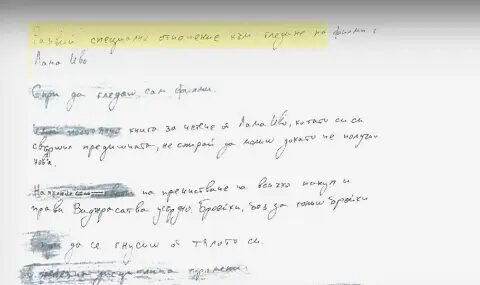 Развий специално отношение към гледане на филми с
Лама Иво
Спри да гледаш сам филми.
книга за четене от Лама Иво, когато си си
свършил предишната, не спирай да молиш докато не получиш
нова.
на пречистване на всичко
прави Ваджрасатва усърдно. Бройки, без да гониш бройки
да се гнусиш от тялото си.